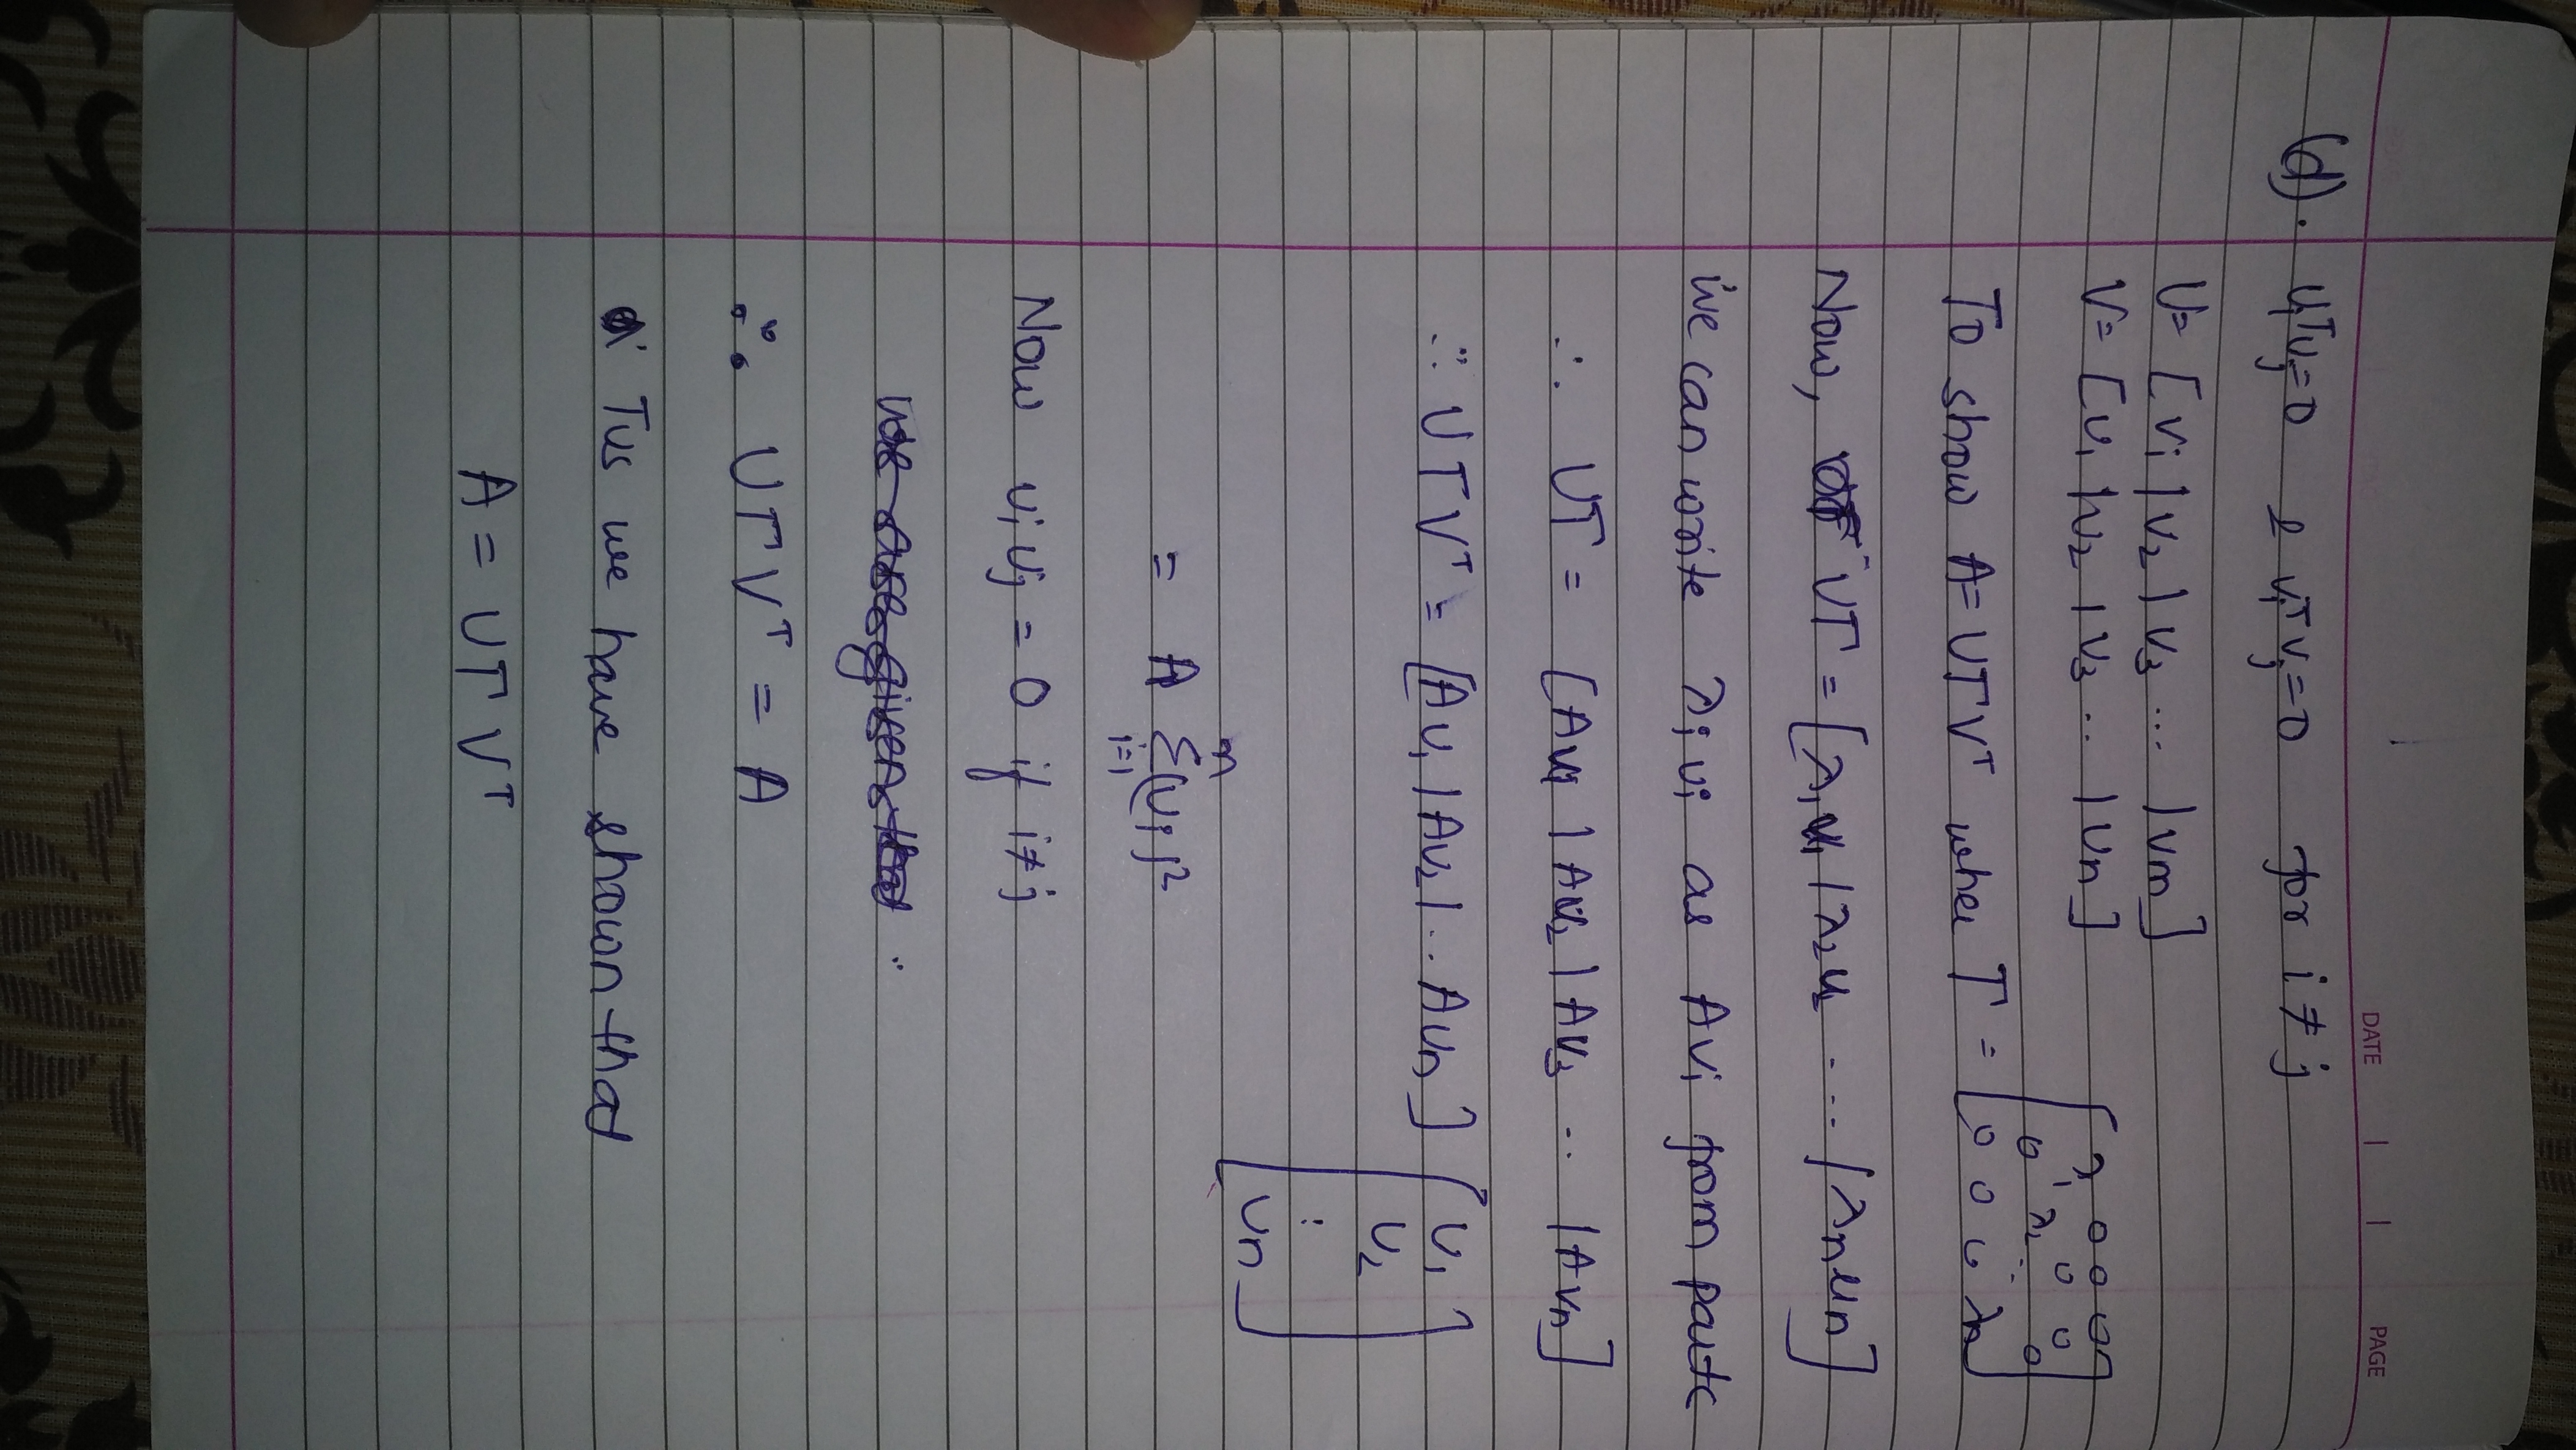 DATE | | PAGE
(d). uᵢᵀuⱼ=0 & vᵢᵀvⱼ=0 for i ≠ j
U= [v₁ | v₂ | v₃ ... | vm]
V= [v₁ | v₂ | v₃ .. | vn]
To show A= UΓVᵀ where Γ = [λ₁ 0 0 0
0 λ₂ 0 0 0
0 0 0 λn]
Now, UΓ = [λ₁u₁ | λ₂u₂ .... | λnun]
we can write λᵢuᵢ as Avᵢ from part c
∴ UΓ = [Av₁ | Av₂ | Av₃ .. | Avn]
∴ UΓVᵀ = [Av₁ | Av₂ | .. Avn] [v₁
v₂
⋮
vn]
= A Σⁿᵢ₌₁ (vᵢ)²
Now vᵢvⱼ = 0 if i≠j
∴ UΓVᵀ = A
Tus we have shown that
A = UΓVᵀ